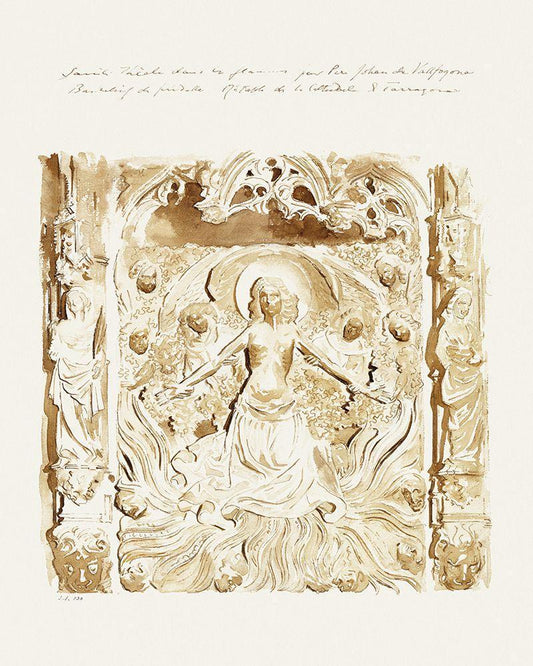 Sainte Thècle dans les flammes par Pere Johan de Vallfogona
Bas-relief de prédelle Rétable de la Cathédrale de Tarragona